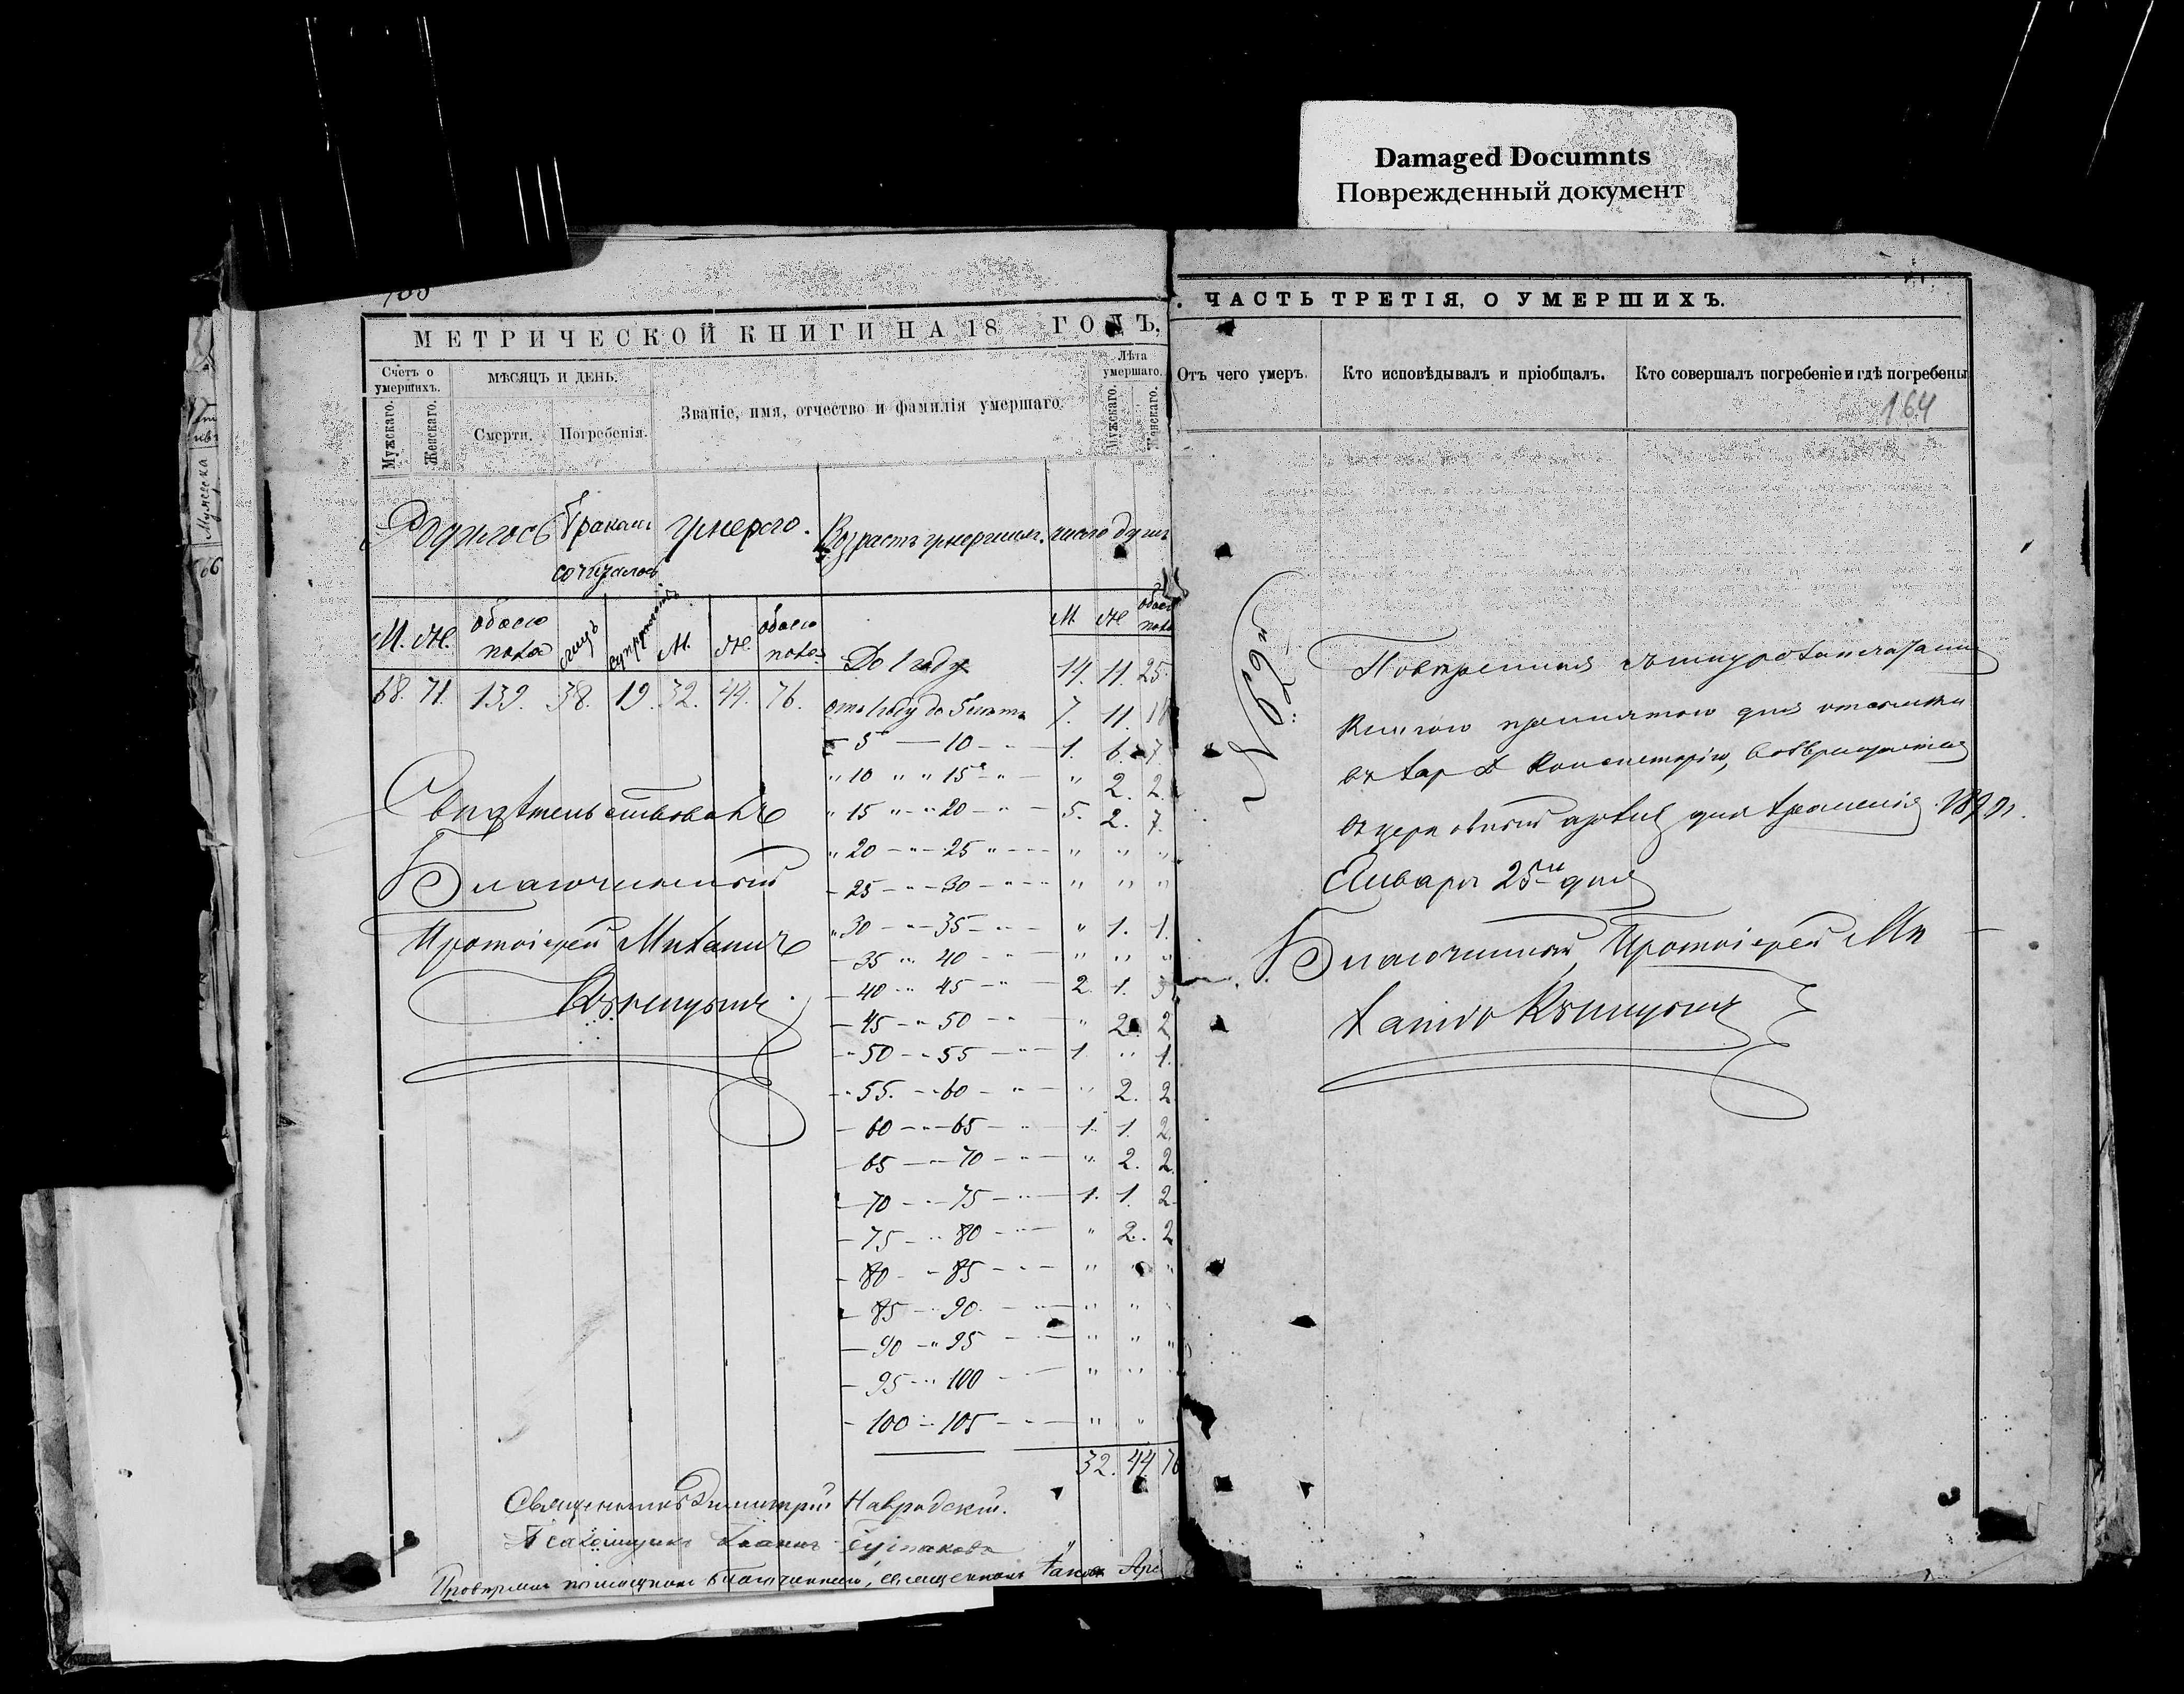 Damaged Documnts
Поврежденный документ
МЕТРИЧЕСКОЙ КНИГИ НА 18 ГОДЪ,
Счетъ о умершихъ.
Мужскаго.
Женскаго.
МѢСЯЦЪ И ДЕНЬ.
Смерти.
Погребенія.
Званіе, имя, отчество и фамилія умершаго.
Лѣта умершаго.
Мужскаго.
Женскаго.
Родилось
Бракомъ
сочеталось
умерло.
Возрастъ умершихъ.
число душъ
М. Ж. обоего пола
лицъ
супружествъ
М. Ж. обоего пола
М. Ж. обоего пола
68. 71. 139. 38. 19. 32. 44. 76.
До 1 году 14. 11. 25.
отъ 1 году до 5 лѣтъ 7. 11. 18
– 5 – 10 – 1. 6. 7.
" 10 " " 15 – " – " 2. 2.
" 15 " – " 20 – " – 5. 2. 7.
" 20 – " – 25 " – – " " "
– 25 – " – 30 – " – " " " "
" 30 – " – 35 – " – " 1. 1.
– 35 " " 40 – " – " " "
– 40 – " 45 – " – 2. 1. 3
– 45 – " 50 – " – " 2. 2
– " 50 – " 55 – " – 1. " 1.
– " 55. – " 60 – " – " 2. 2
– 60 – " – 65 – " – 1. 1. 2.
– 65 – " – 70 – " – " 2. 2.
– 70 – " – 75 – " – 1. 1. 2
– 75 – " 80 – " – " 2. 2
– 80 – " 85 – " – " " "
– 85 – " 90 – " – " " "
– 90 – " 95 – " – " " "
– 95 – " 100 – " " "
– 100 – 105 – " – " "
32. 44. 76
Свидѣтельствовалъ
Благочинный
Протоіерей Михаилъ
Священникъ Димитрій Навродскій.
Псаломщикъ
помощникъ благочиннаго, священникъ
. ЧАСТЬ ТРЕТІЯ, О УМЕРШИХЪ.
Отъ чего умеръ.
Кто исповѣдывалъ и пріобщалъ.
Кто совершалъ погребеніе и гдѣ погребены
164
книгою принятою для отсылки
въ Хар Д Консисторію, возвращается
въ церковный архивъ для храненія
Января 25 дня
Благочинный, Протоіерей Ми
хаилъ